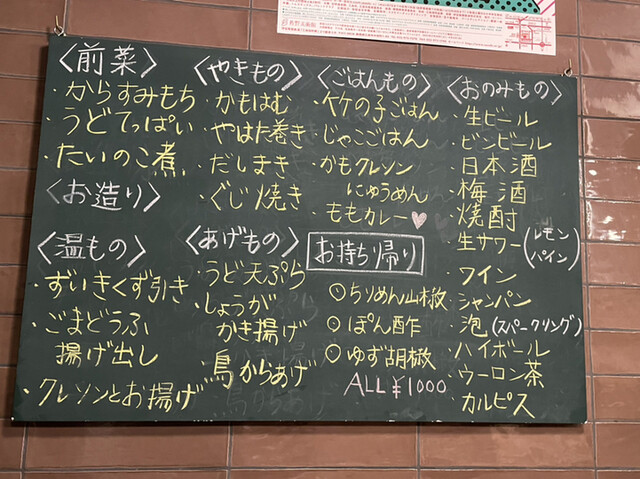 〈前菜〉
・からすみもち
・うどてっぱい
・たいのこ煮
〈お造り〉
〈温もの〉
・ずいきくず引き
・ごまどうふ
揚げ出し
・クレソンとお揚げ
〈やきもの〉
・かもはむ
・やはた巻き
・だしまき
・ぐじ焼き
〈あげもの〉
・うど天ぷら
・しょうが
かき揚げ
・鳥からあげ
〈ごはんもの〉
・竹の子ごはん
・じゃこごはん
・かもクレソン
にゅうめん
・ももカレー♡
お持ち帰り
○ちりめん山椒
○ぽん酢
○ゆず胡椒
ALL ¥1000
〈おのみもの〉
・生ビール
・ビンビール
・日本酒
・梅酒
・焼酎
・生サワー(レモン
パイン)
・ワイン
・シャンパン
・泡(スパークリング)
・ハイボール
・ウーロン茶
・カルピス